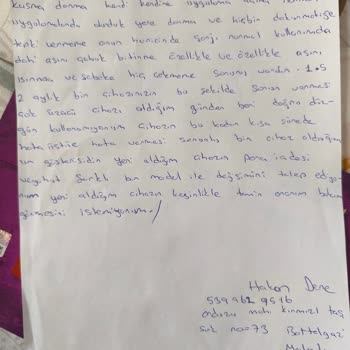 kusma donma kendi kendine uygulama açma
uygulamalarda durduk yere donma ve hiçbir dokunmatiğe
tepki vermeme onun haricinde şarj normal kullanımda
dahi aşırı çabuk bitirme özellikle ve özellikle aşırı
ısınma ve şebeke hiç çekmeme sorunu vardır. 1.5
2 aylık bir cihazınızın bu şekilde sorun vermesi
çok üzücü cihazı aldığım günden beri doğru düz-
gün kullanamıyorum cihazın bu kadar kısa sürede
hata üstüne hata vermesi sorunlu bir cihaz aldığım
ın göstergesidir yeni aldığım cihazın para iadesi
veyahut farklı bir model ile değişimini talep ediyo-
rum yeni aldığım cihazın kesinlikle tamir onarım
görmesini istemiyorum.
Hakan Dere
539 962 9516
orduzu mah kırmızı taş
sok no=73 Battalgazi